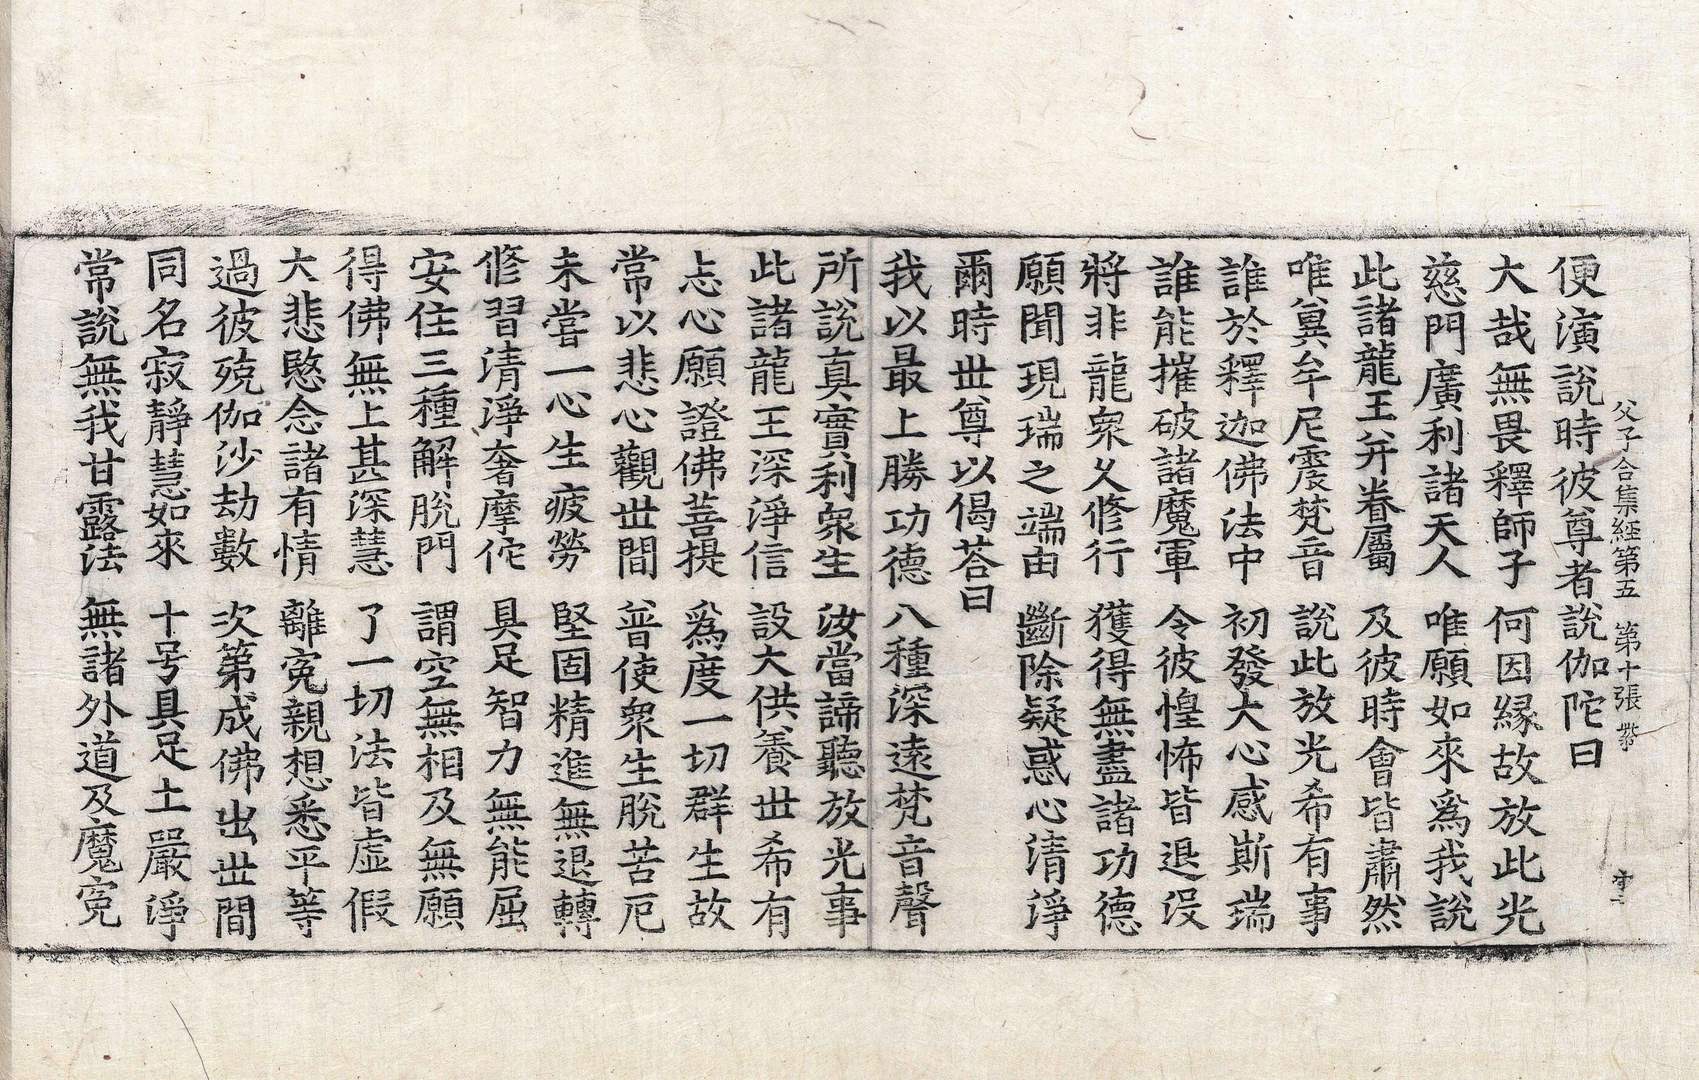 父子合集經第五　第十張　
便演說時彼尊者說伽陀曰
大哉無畏釋師子　何因緣故放此光
慈門廣利諸天人　唯願如來為我說
此諸龍王并眷屬　及彼時會皆肅然
唯兾牟尼震梵音　說此放光希有事
誰於釋迦佛法中　初發大心感斯瑞
誰能摧破諸魔軍　令彼惶怖皆退沒
將非龍衆久修行　獲得無盡諸功德
願聞現瑞之端由　斷除疑惑心清淨
爾時世尊以偈荅曰
我以最上勝功德　八種深遠梵音聲
所說真實利衆生　汝當諦聽放光事
此諸龍王深淨信　設大供養世希有
志心願證佛菩提　為度一切群生故
常以悲心觀世間　普使衆生脫苦厄
未嘗一心生疲勞　堅固精進無退轉
修習清淨奢摩佗　具足智力無能屈
安住三種解脫門　謂空無相及無願
得佛無上甚深慧　了一切法皆虛假
大悲愍念諸有情　離寃親想悉平等
過彼殑伽沙劫數　次第成佛出世間
同名寂靜慧如來　十号具足土嚴淨
常說無我甘露法　無諸外道及魔寃